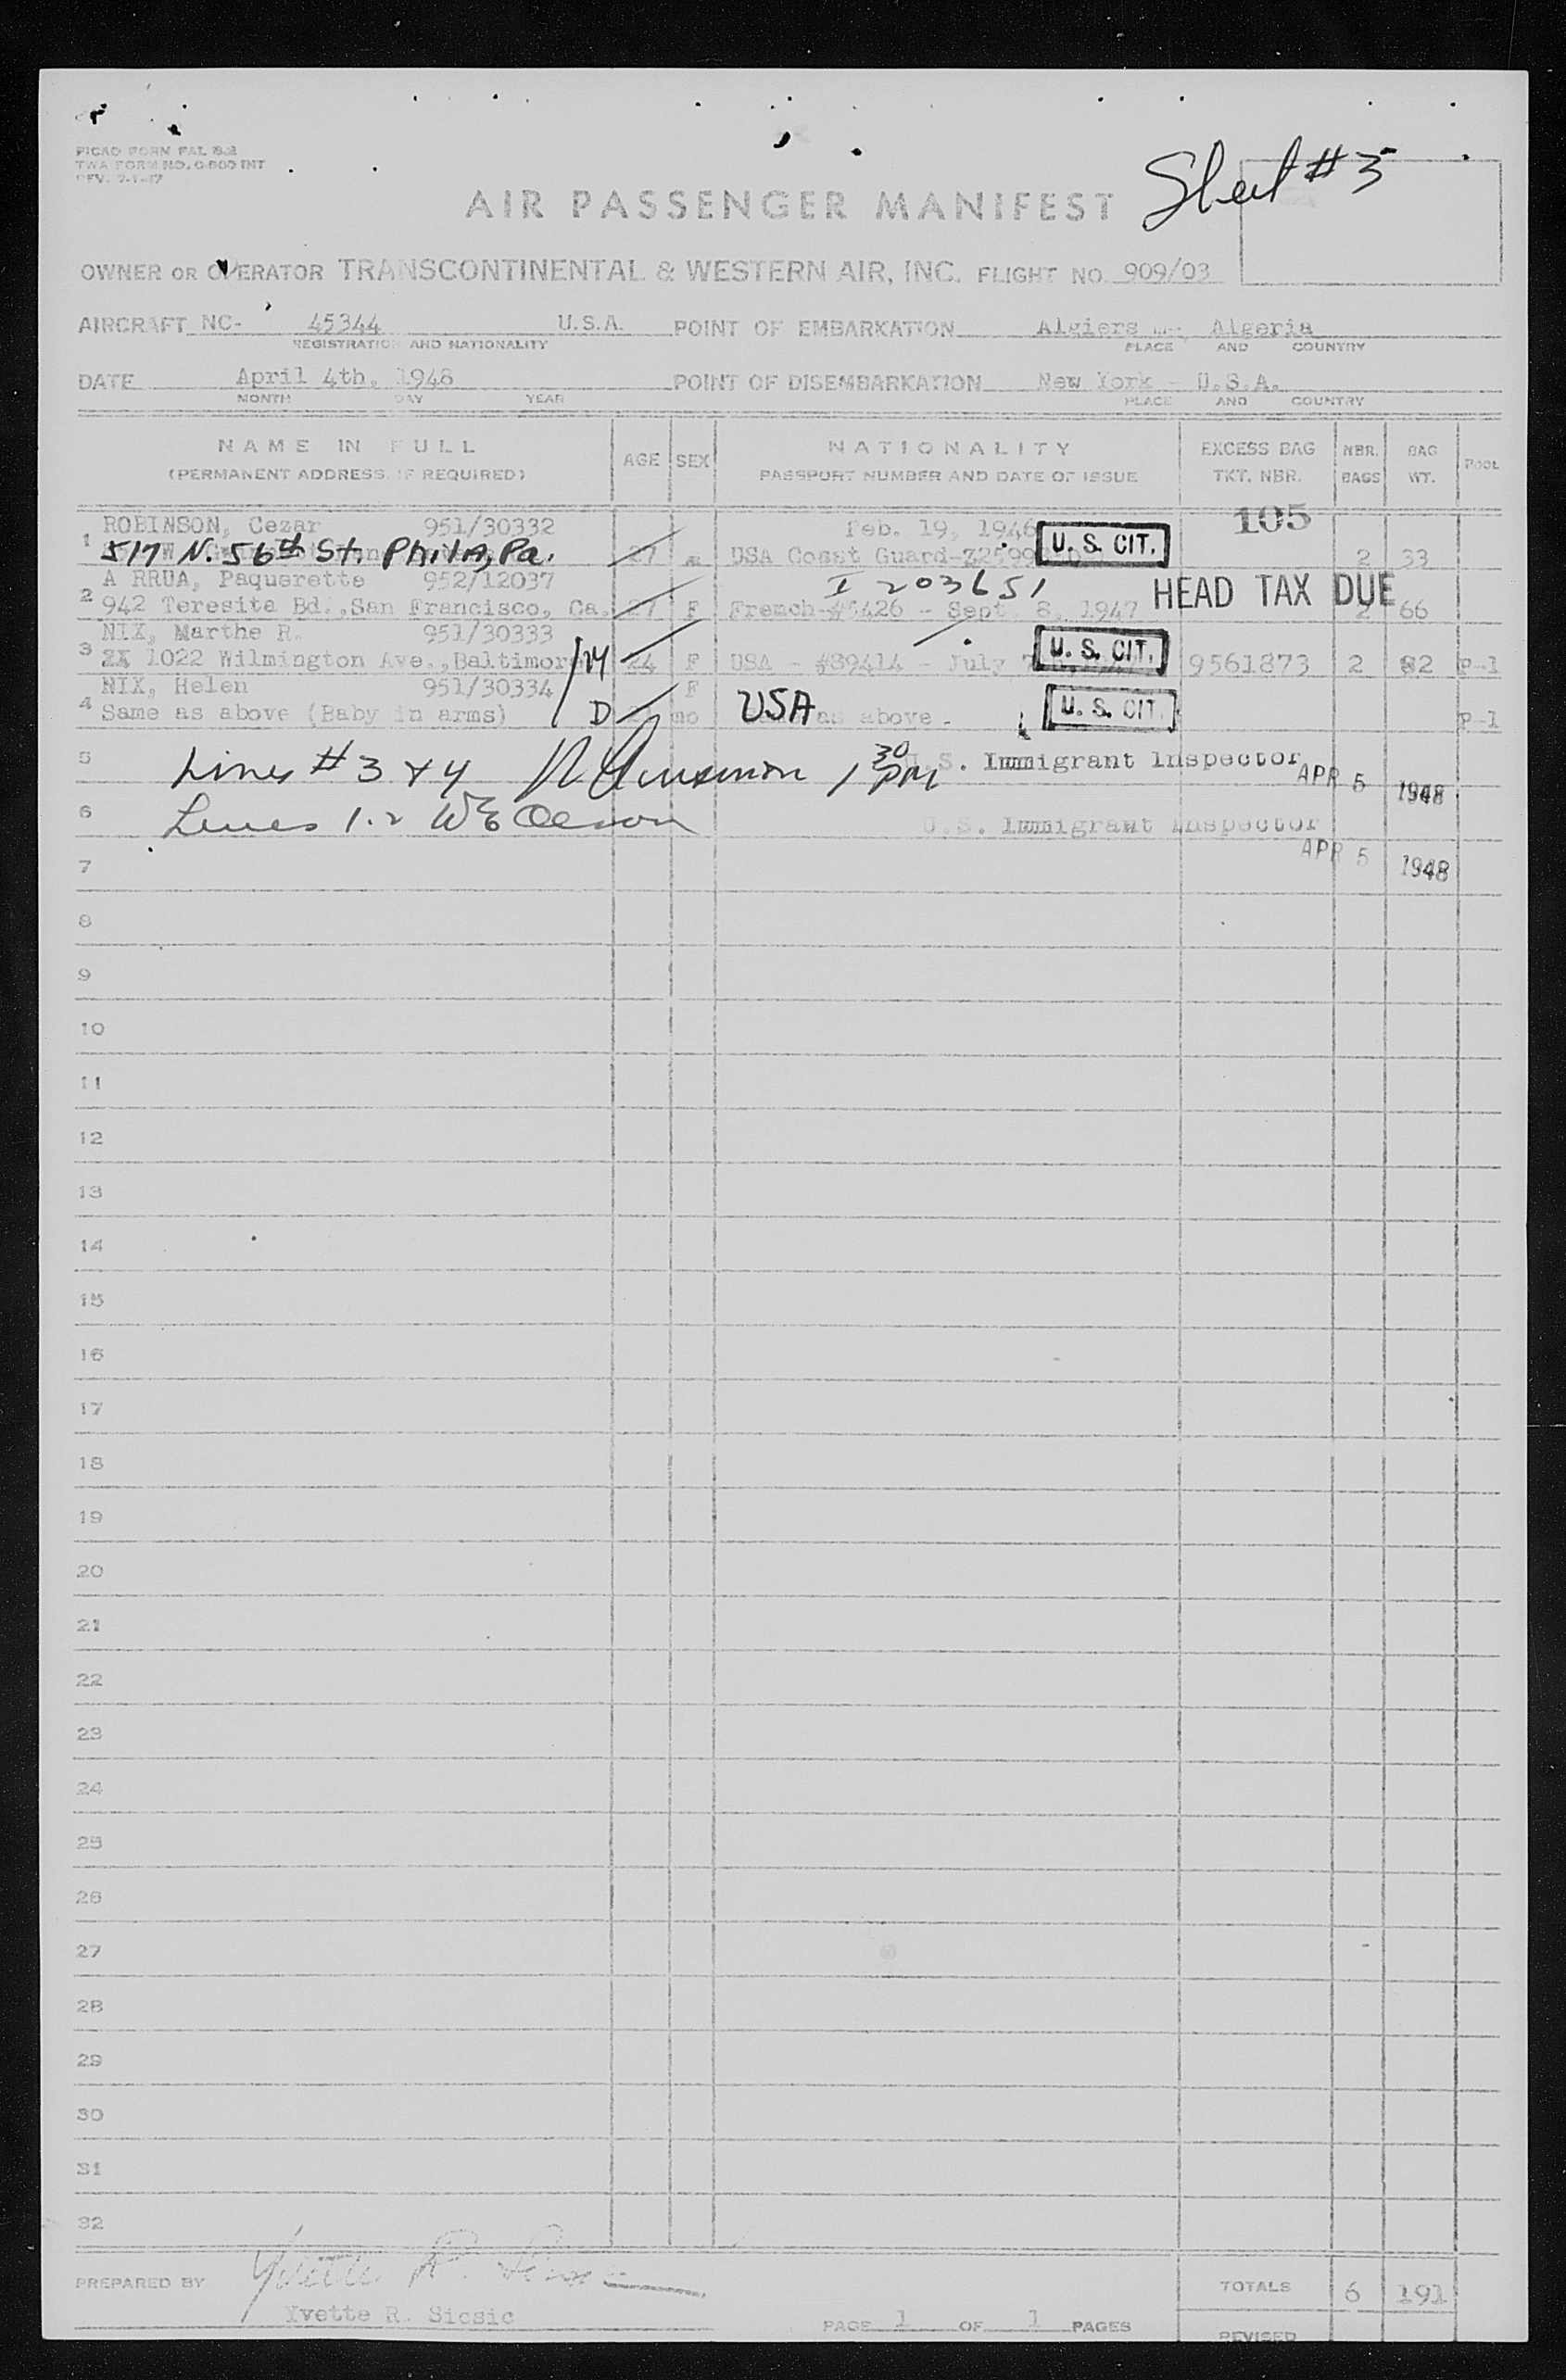 PICAO FORM FAL 8.2
TWA FORM NO. O-800 INT
REV. 7-1-47
AIR PASSENGER MANIFEST
Sheet #3
OWNER OR OPERATOR TRANSCONTINENTAL & WESTERN AIR, INC. FLIGHT NO. 909/03
AIRCRAFT NC- 45344 U.S.A. POINT OF EMBARKATION Algiers - Algeria
REGISTRATION AND NATIONALITY PLACE AND COUNTRY
DATE April 4th, 1948 POINT OF DISEMBARKATION New York - U.S.A.
MONTH DAY YEAR PLACE AND COUNTRY
NAME IN FULL AGE SEX NATIONALITY EXCESS BAG NBR. BAG POOL
(PERMANENT ADDRESS IF REQUIRED) PASSPORT NUMBER AND DATE OF ISSUE TKT. NBR. BAGS WT.
ROBINSON, Cezar 951/30332 Feb. 19, 1946 105
1 517 N. 56th St. Phila, Pa. 27 USA Coast Guard- U. S. CIT. 2 33
A RRUA, Paquerette 952/12037 I 203651 HEAD TAX DUE
2 942 Teresita Bd.,San Francisco, Ca. 27 F French- - Sept. 8, 1947 2 66
NIX, Marthe R. 951/30333
3 1022 Wilmington Ave.,Baltimore 24 F USA - #89414 - July U. S. CIT. 9561873 2 82 P-1
NIX, Helen 951/30334 F
4 Same as above (Baby in arms) D mo USA as above. U. S. CIT. P-1
5 Lines #3 & 4 1 30 PM U.S. Immigrant Inspector APR 5 1948
6 Lines 1-2 U.S. Immigrant Inspector
7 APR 5 1948
8
9
10
11
12
13
14
15
16
17
18
19
20
21
22
23
24
25
26
27
28
29
30
31
32
PREPARED BY Yvette R. TOTALS 6 191
Yvette R. Sicsic PAGE 1 OF 1 PAGES
REVISED